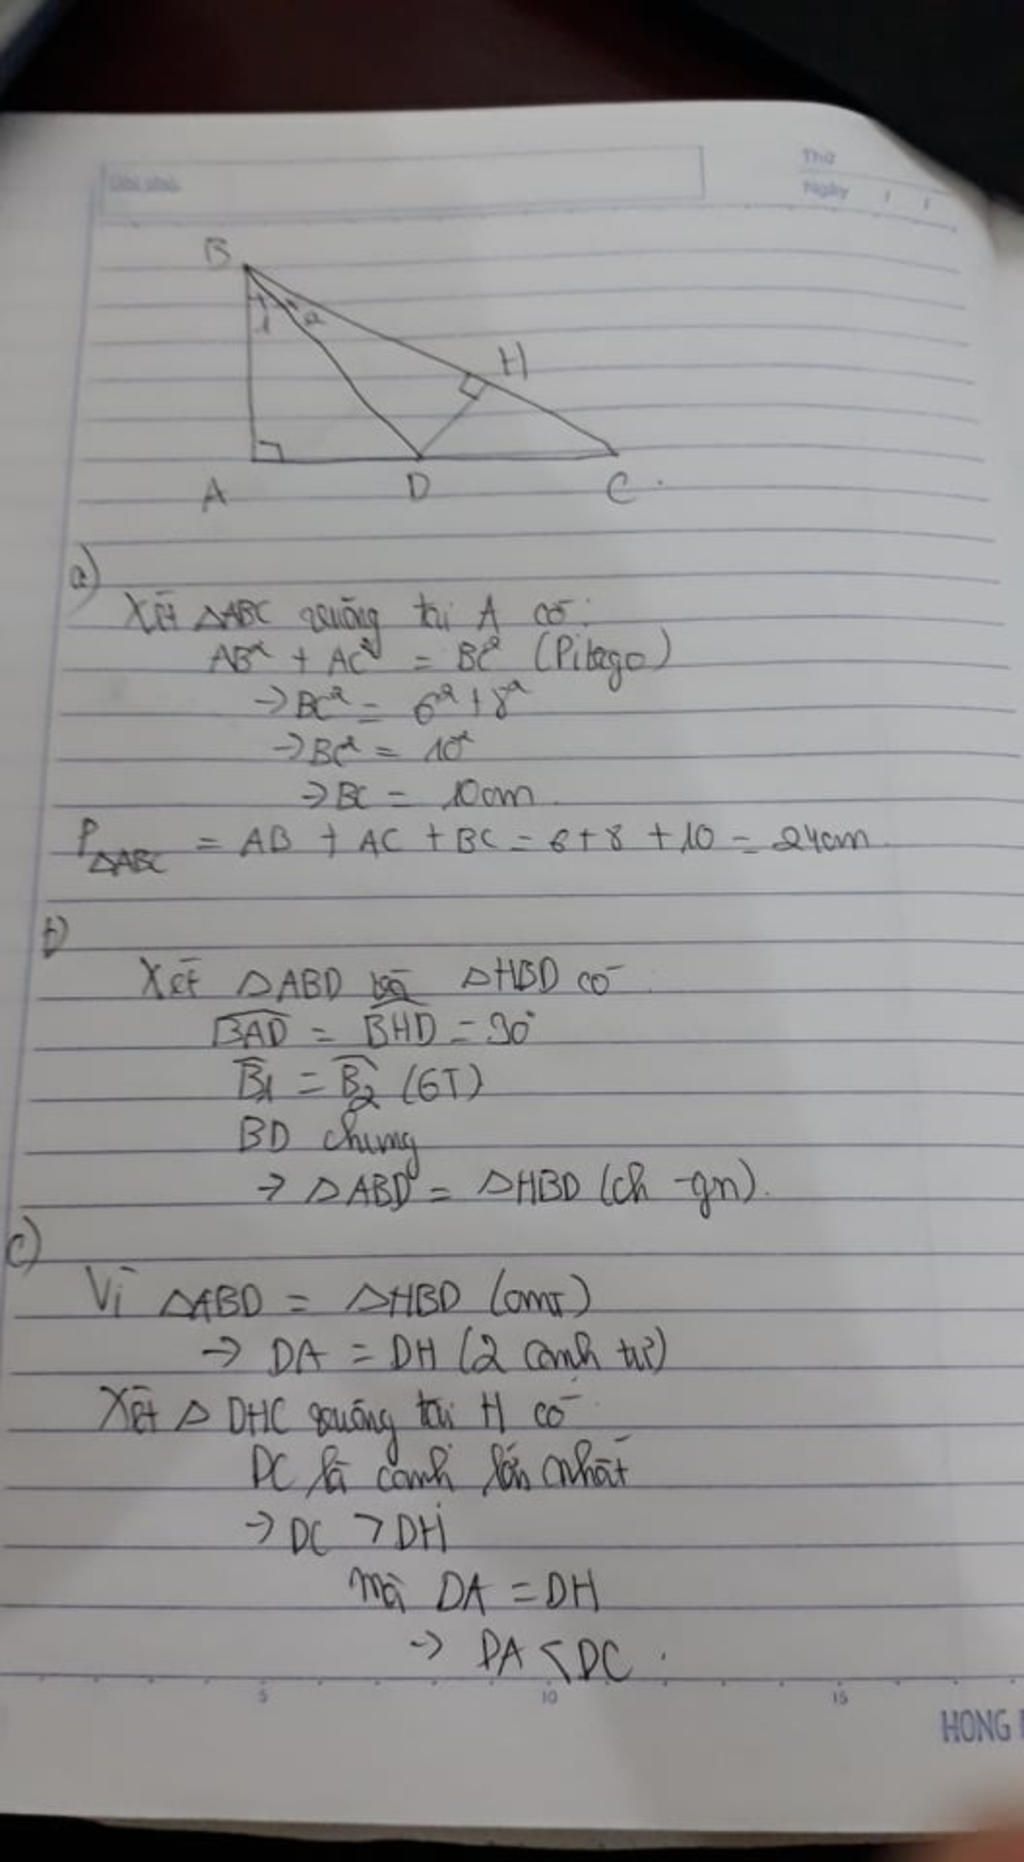 Thứ
Ngày / /
B
1 2
H
A D C
a)
Xét △ABC vuông tại A có:
AB² + AC² = BC² (Pitago)
→ BC² = 6² + 8²
→ BC² = 10²
→ BC = 10cm.
P△ABC = AB + AC + BC = 6 + 8 + 10 = 24cm.
b)
Xét △ABD và △HBD có
BAD = BHD = 90°
B1 = B2 (GT)
BD chung
→ △ABD = △HBD (ch - gn).
c)
Vì △ABD = △HBD (cmt)
→ DA = DH (2 cạnh tư)
Xét △ DHC vuông tại H có
DC là cạnh lớn nhất
→ DC > DH
mà DA = DH
→ DA < DC.
5 10 15
HONG